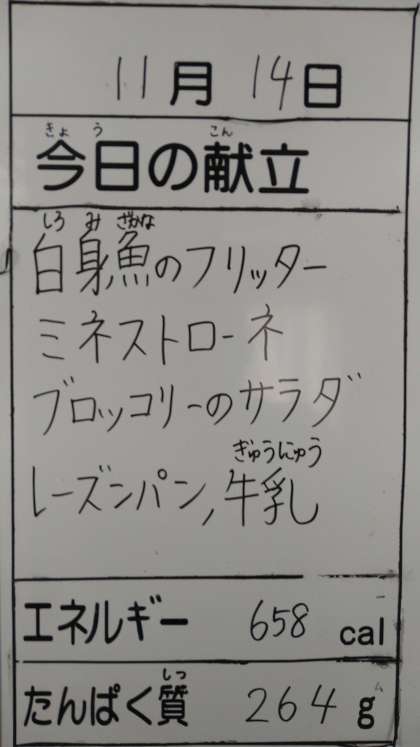 11月 14日
きょ う こん
今日の献立
しろ み ざかな
白身魚のフリッター
ミネストローネ
ブロッコリーのサラダ
ぎゅうにゅう
レーズンパン,牛乳
エネルギー 658 cal
しつ
たんぱく質 264 g